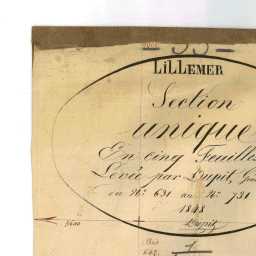 LILLEMER
Section
unique
En cinq Feuilles
Levée par Dupit, Géo
du N° 631 au N° 731
1848
Dupit